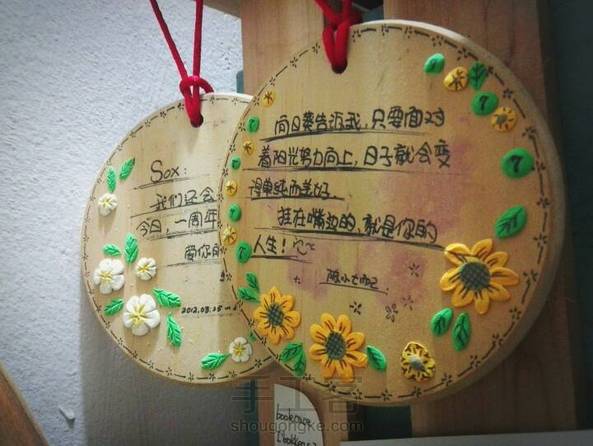 Sox:
我们还会
今日，一周年
爱你的
2012.03.25
向日葵告诉我，只要面对
着阳光努力向上，日子就会变
得单纯而美好。
挂在嘴边的，就是你的
人生！
手工客
shougongke.com
bookcase